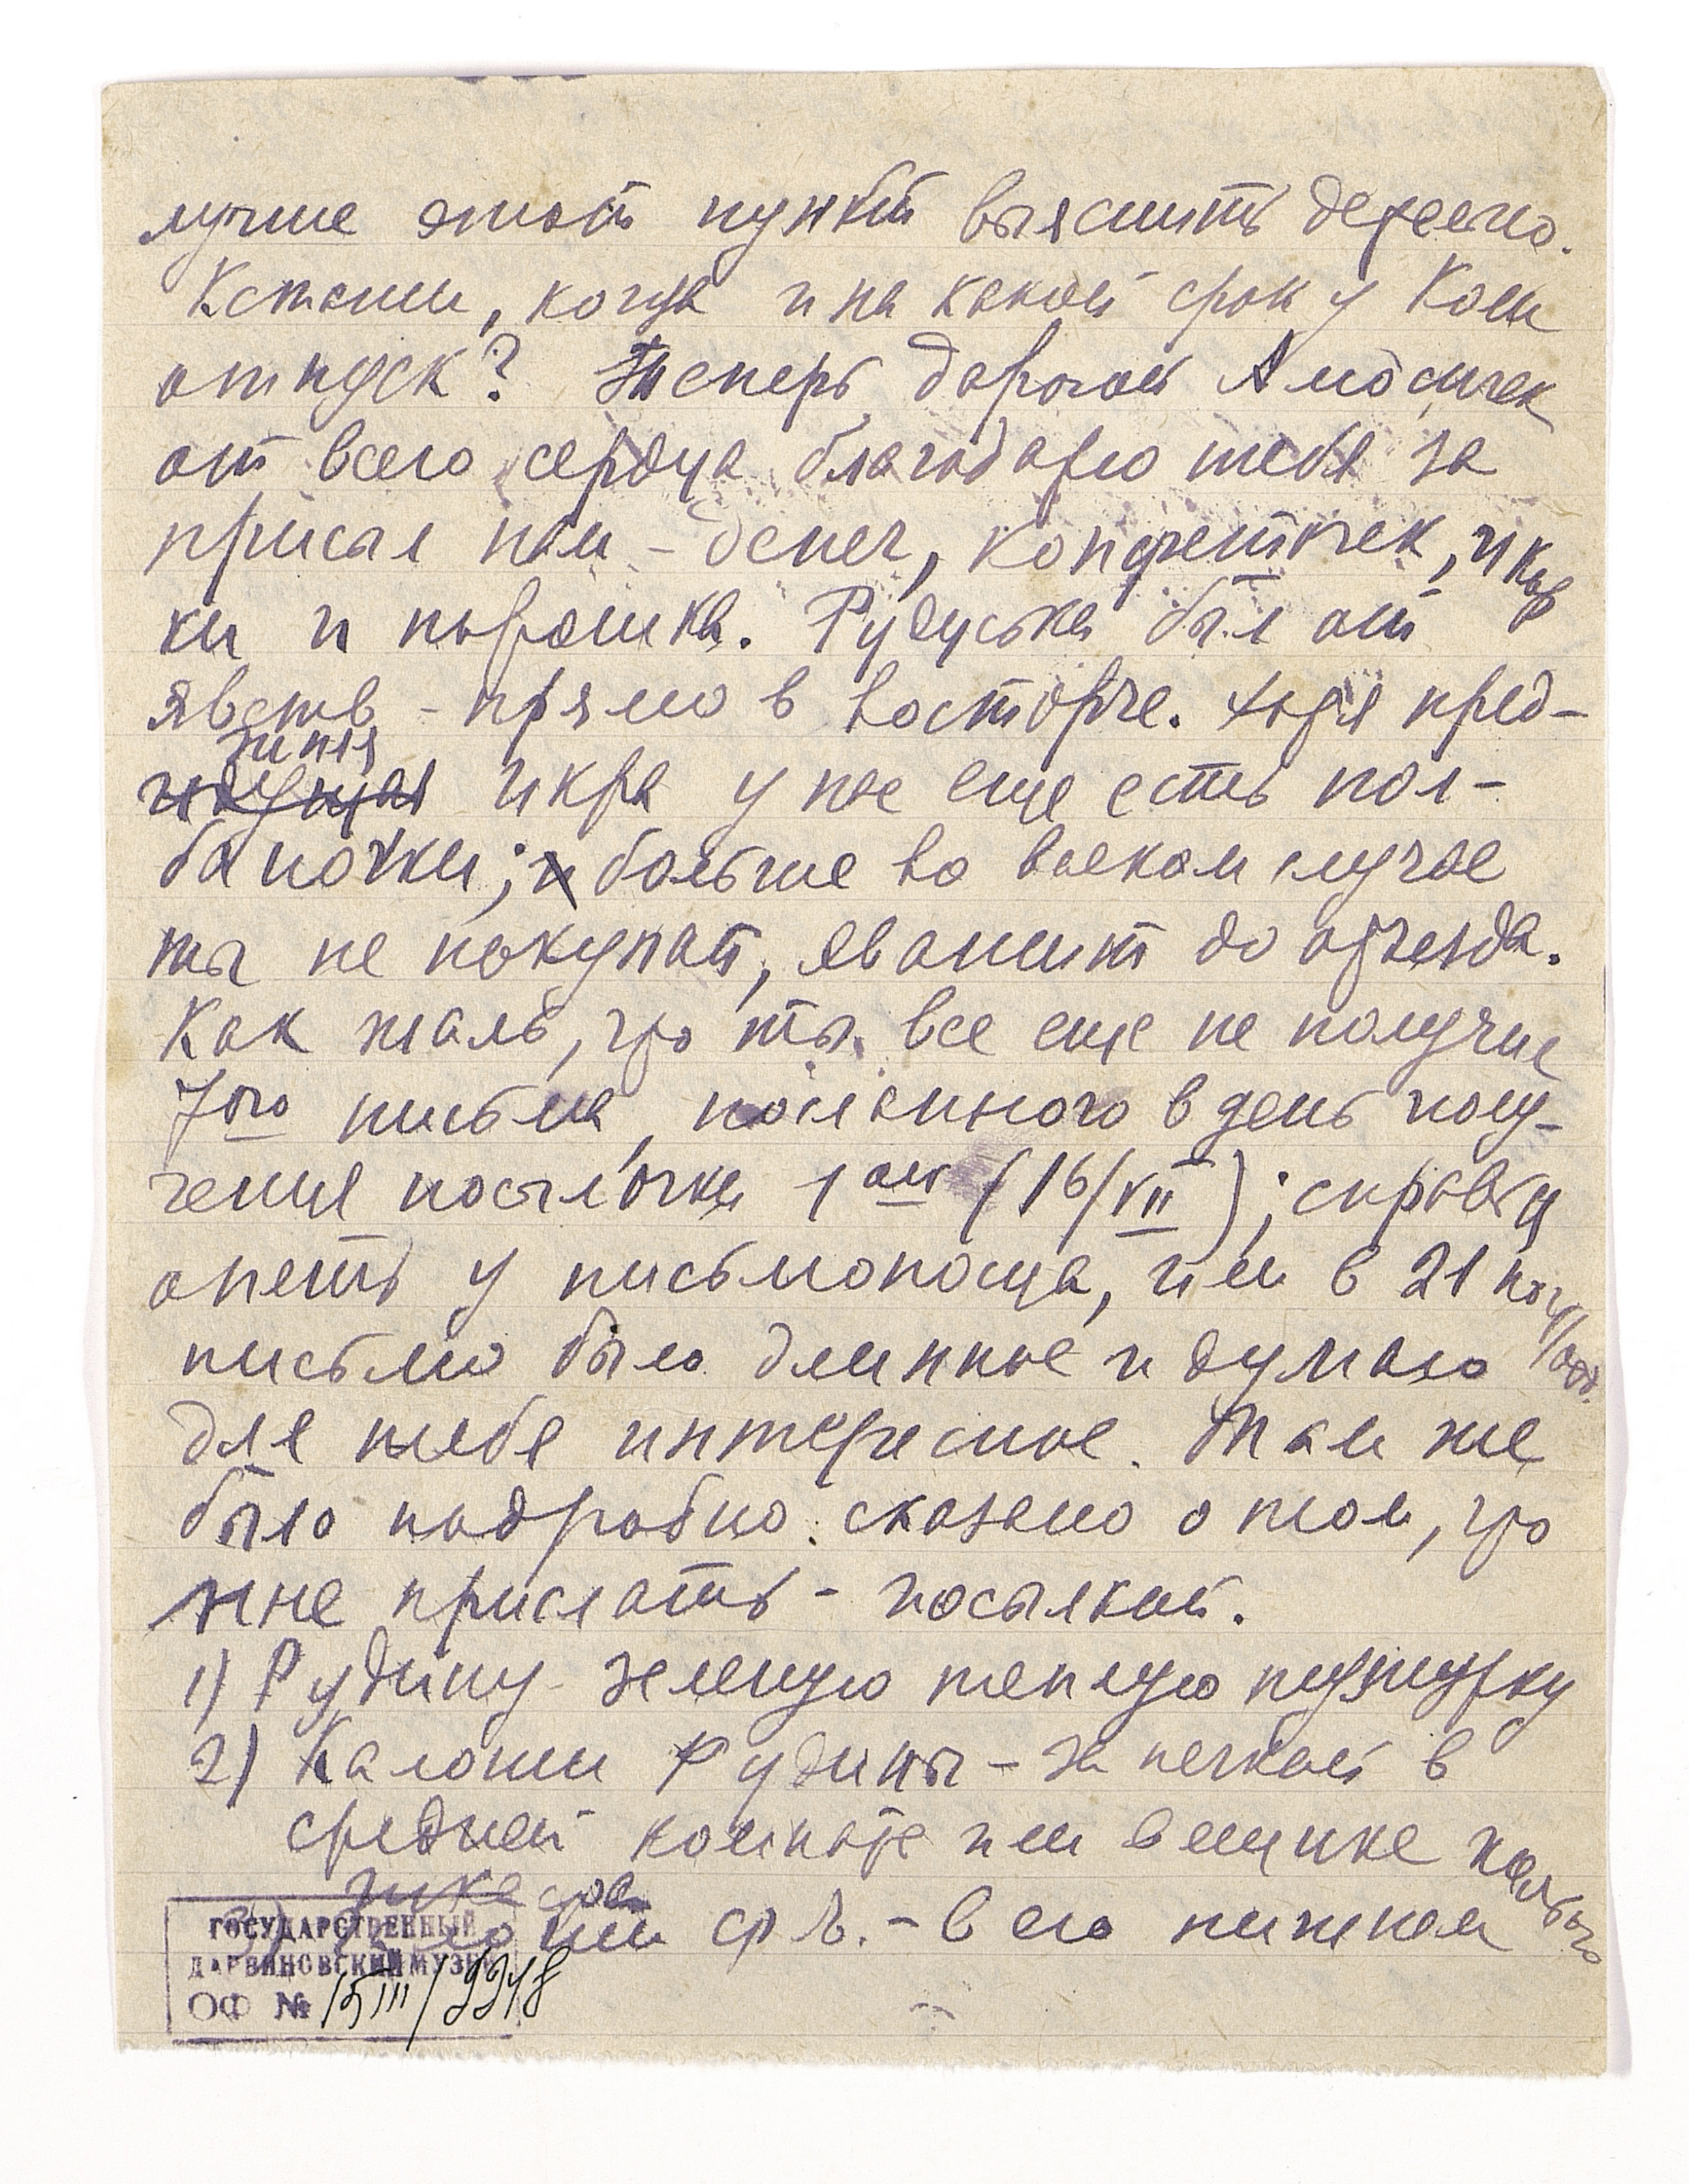 лучше этот пункт выяснить детально.
Кстати, когда и на какой срок у Коли
отпуск? Теперь дорогой
от всего сердца благодарю тебя за
присыл нам – денег, конфеточек, икор
ки и порошка. Рудуська был от
явств – прямо в восторге. Хотя пред-
зипия
идущая икра у нас еще есть пол-
баночки; и больше во всяком случае
ты не покупай, хватит до отъезда.
Как жаль, что ты все еще не получил
7ого письма, посланного в день полу-
чения посылочки 1ой (16/VII); справься
опять у письмоносца, или в 21 почт/отд.
письмо было длинное и думаю
для тебя интересное. Там же
было подробно сказано о том, что
мне прислать – посылкой.
1) Рудину зеленую теплую тужурку
2) Калоши Рудины – за печкой в
средней комнате или в ящике
ср Ѣ. – в его нижнем
ГОСУДАРСТВЕННЫЙ
ДАРВИНОВСКИЙ МУЗЕЙ
ОФ № 15111/9948